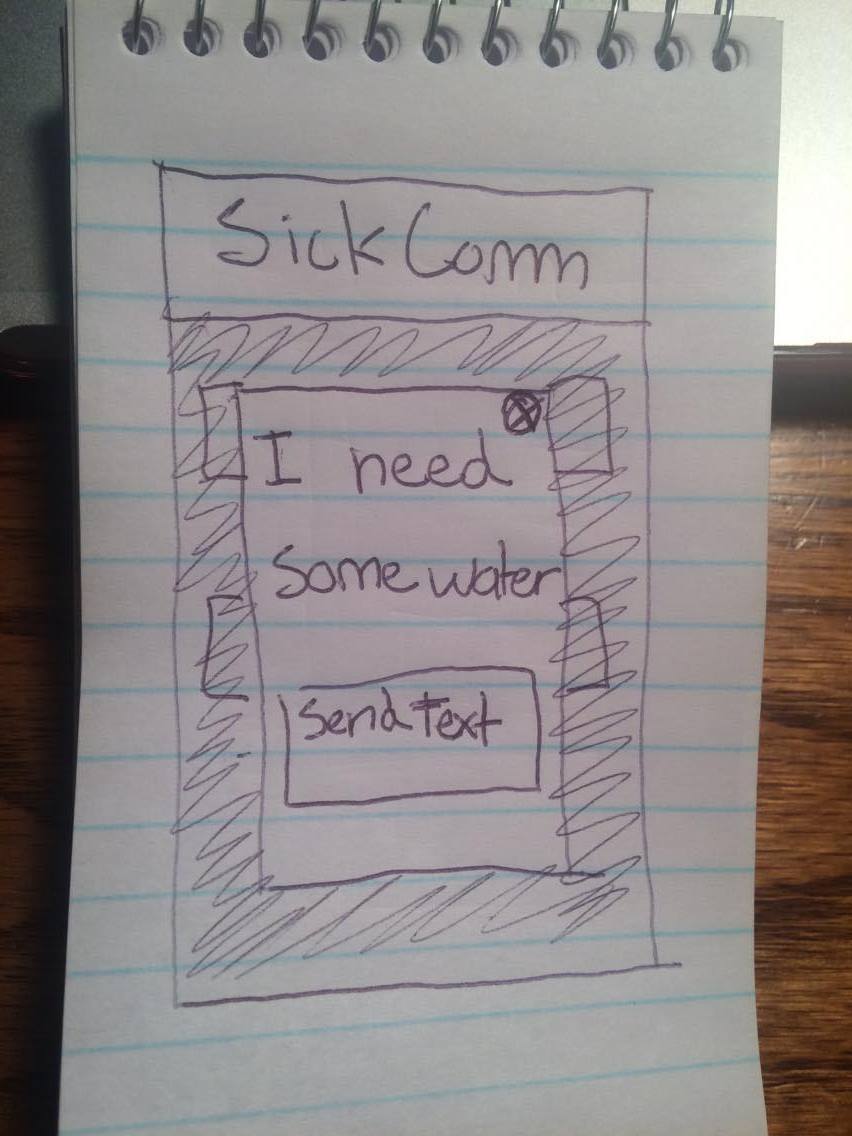 Sick Comm
I need
some water
Send Text